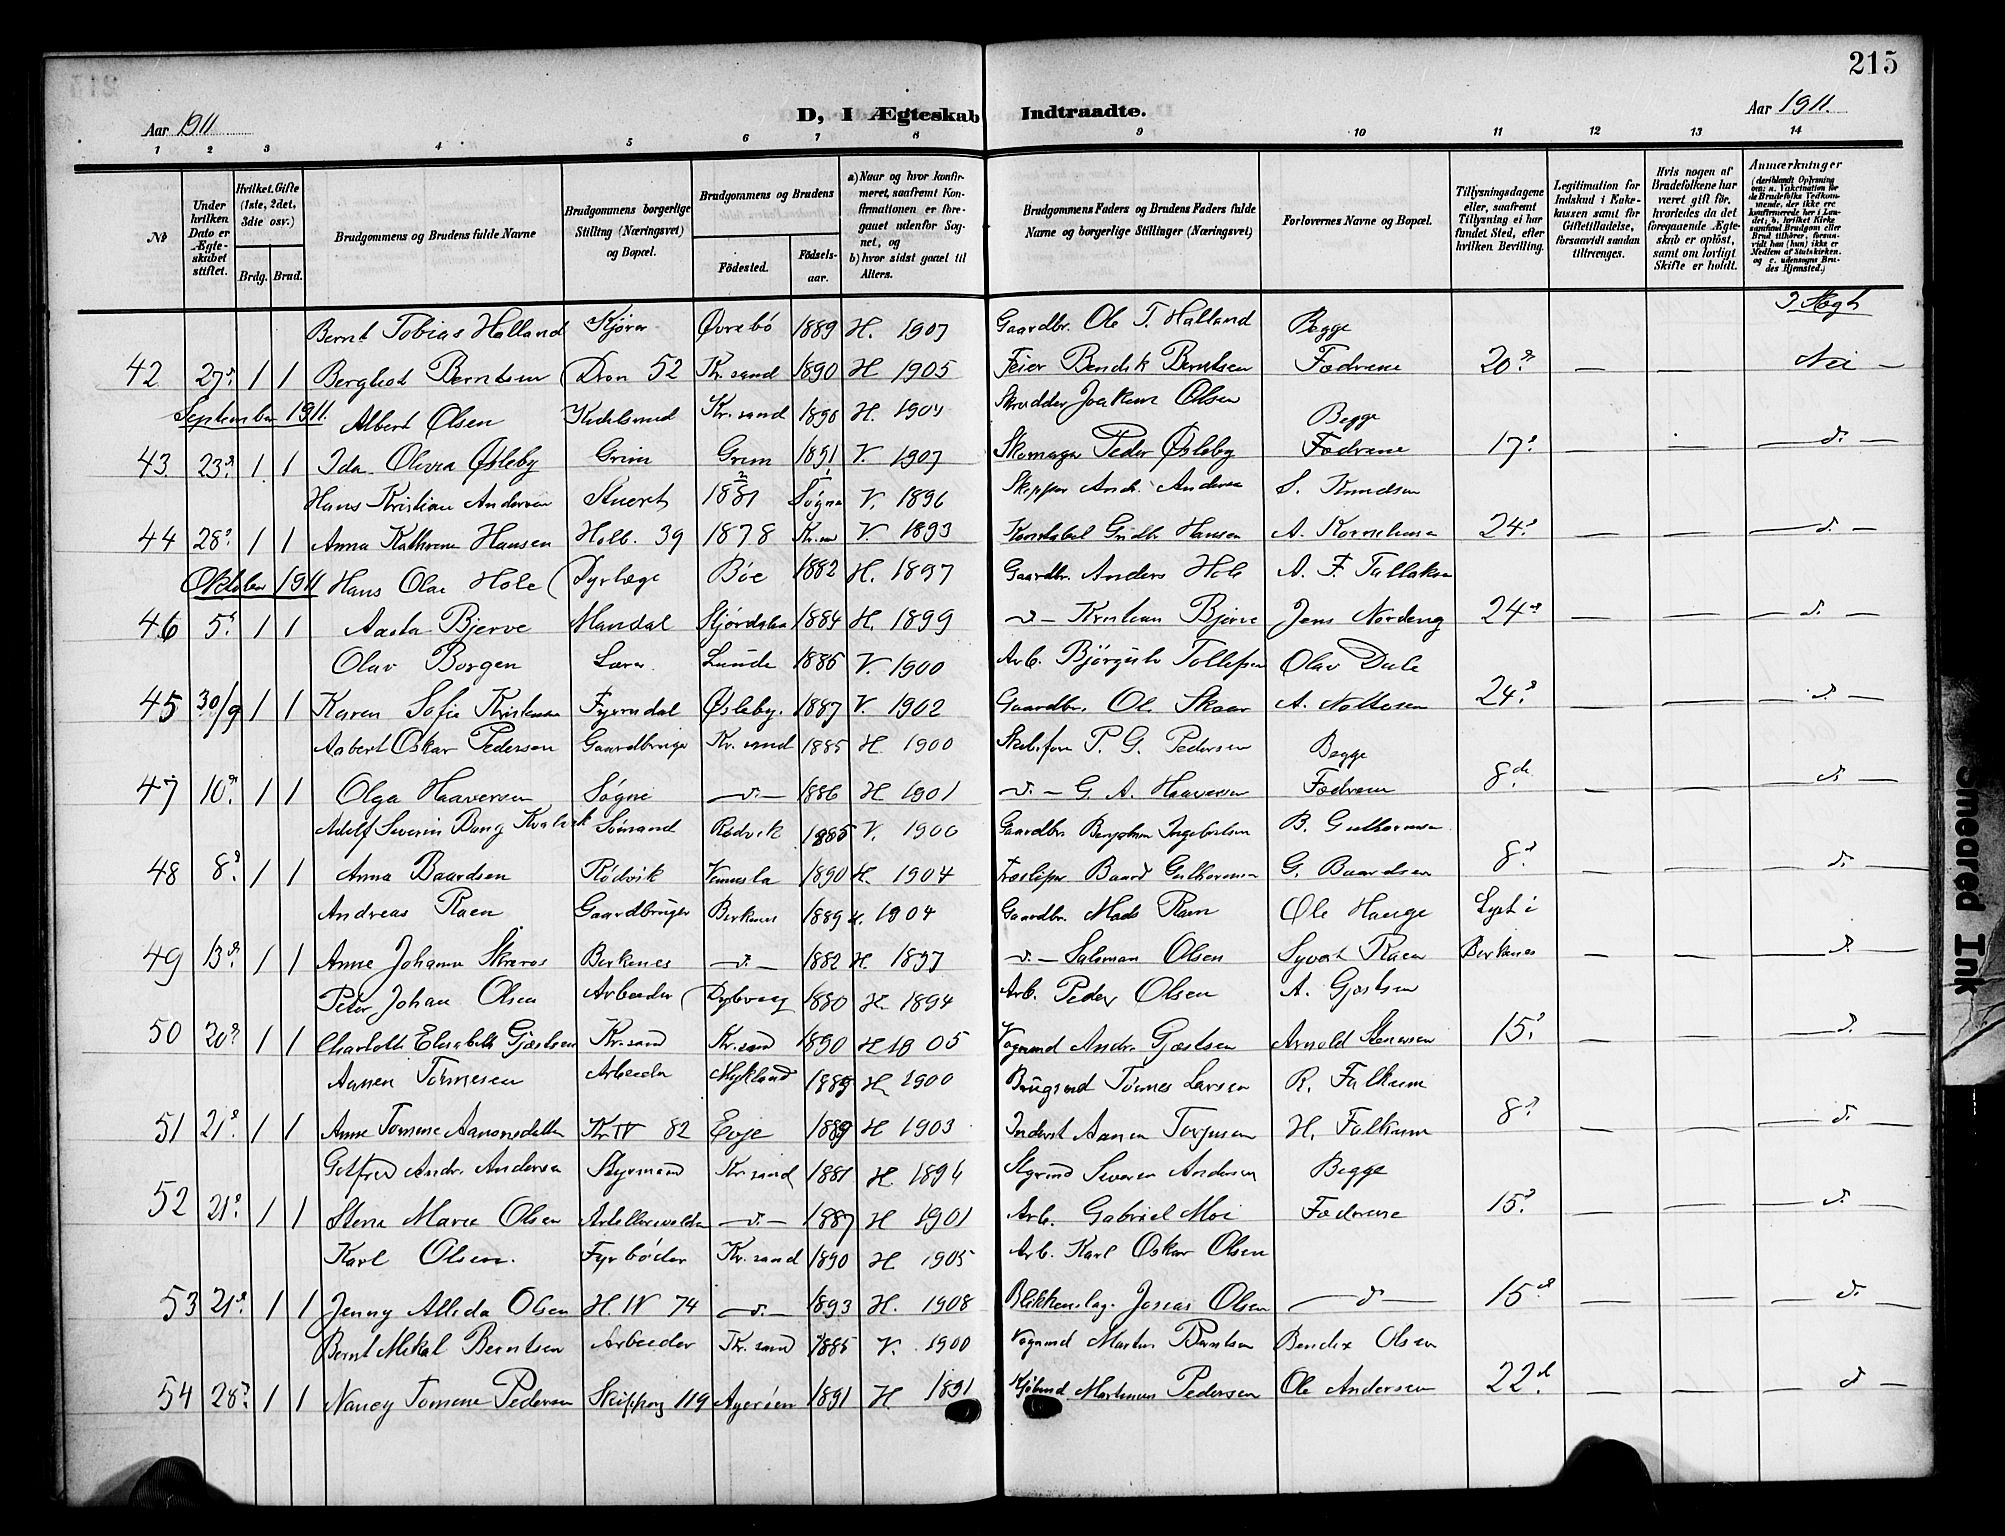 215
Aar 1911
D, I Ægteskab Indtraadte.
Aar 1911.
1 2 3 4 5 6 7 8 9 10 11 12 13 14
No
Under hvilken Dato er Ægteskabet stiftet.
Hvilket Gifte (1ste, 2det, 3die osv.)
Brdg. Brud.
Brudgommens og Brudens fulde Navne
Brudgommens borgerlige Stilling (Næringsvei) og Bopæl.
Brudgommens og Brudens
Fødested. Fødselsaar.
a) Naar og hvor konfirmeret, saafremt Konfirmationen er foregaaet udenfor Sognet, og
b) hvor sidst gaaet til Alters.
Brudgommens Faders og Brudens Faders fulde Navne og borgerlige Stillinger (Næringsvei)
Forlovernes Navne og Bopæl.
Tillysningsdagene eller, saafremt Tillysning ei har fundet Sted, efter hvilken Bevilling.
Legitimation for Indskud i Enkekassen samt for Giftetilladelse, forsaavidt saadan tiltrænges.
Hvis nogen af Brudefolkene har været gift før, hvorledes da det foregaaende Ægteskab er opløst, samt om lovligt Skifte er holdt.
Anmærkninger
Bernt Tobias Halland Kjører Øvrebø 1889 H. 1907 Gaardbr. Ole T. Halland Begge
42 27d. 1 1 Berghot Berntsen Dron 52 Kr.sand 1890 H 1905 Feier Bendik Berntsen Fædrene 20d. — — Nei —
September 1911. Albert Olsen Kr.sand 1890 H. 1904 Skrædder Joakim Olsen Begge
43 23d. 1 1 Ida Olivia Øsleby Grim Grim 1891 V. 1907 Skomager Peder Øsleby Fædrene 17d. — — — d. —
Hans Kristian Andersen Stuert 1881 Søgne V. 1896 Skipper Andr. Andersen S. Knudsen
44 28d. 1 1 Anna Kathrine Hansen Holb. 39 1878 V. 1893 Konstabel Hansen A. Kornelius 24d. — — — d. —
Oktober 1911 Hans Olai Hole Dyrlæge Bøe 1882 H. 1897 Gaardbr. Anders Hole A. F. Tallaksen
46 5d. 1 1 Aasta Bjerve Mandal Stjørdalen 1884 H. 1899 — d — Kristian Bjerve Jens Nordeng 24de — — — d. —
Olav Borgen Lærer Lunde 1885 V. 1900 Arb. Bjørgulv Tollefsen Olav Dale
45 30/9 1 1 Karen Sofie Kristensen Fyresdal Øsleby. 1887 V. 1902 Gaardbr. Ole Skaar A. 24d. — — — d. —
Aabert Oskar Pedersen Gaardbruger Kr.sand 1885 H 1900 P. G. Pedersen Begge
47 10d. 1 1 Olga Haaversen Søgne — d. — 1886 H 1901 — d. — G. A. Haaversen Fædrene 8de — — — d. —
Adolf Severin Bang Kvalvik Rødvik 1885 V. 1900 Gaardbr. Ingebretsen B. Guthormsen
48 8d. 1 1 Anna Baardsen Rødvik Vennesla 1890 H. 1904 Baard Guthormsen G. Baardsen 8d. — — — d. —
Andreas Raen Gaardbruger Birkenes 1889 H. 1904 Gaardbr. Mads Raen Ole Hauge Lyst i
49 13d. 1 1 Anne Johanne Skreros Birkenes — d. — 1882 H. 1897 — d. — Salomon Olsen Syvert Raen Birkenes — — — d. —
Peter Johan Olsen Arbeider Dybvaag 1880 H. 1894 Arb. Peder Olsen A. Gjøstsen
50 20d. 1 1 Charlotte Elisabeth Gjøstsen Kr.sand Kr.sand 1890 H 1905 Vognmd Andr. Gjøstsen Arnold Stensen 15d. — — — d. —
Aanen Tørresen Arbeider Mykland 1885 H. 1900 Brugsmd Tørres Larsen R. Falkum
51 21d. 1 1 Anne Tomine Aanonsdatter Kr. IV 82 Evje 1889 H 1903 Inderst Aanen Torjusen H. Falkum 8d. — — — d. —
Gotfred Andr. Andersen Styrmand Kr.sand 1881 H 1894 Styrmd Severin Andersen Begge
52 21d. 1 1 Stena Marie Olsen — d. — 1887 H 1901 Arb. Gabriel Moi Fædrene 15d. — — — d. —
Karl Olsen. Fyrbøder Kr.sand 1890 H 1905 Arb. Karl Oskar Olsen
53 21d. 1 1 Jenny Allida Olsen H. IV 74 — d. — 1893 H. 1908 Blikkenslag. Josias Olsen — d — 15de — — — d. —
Bernt Mikal Berntsen Arbeider Kr.sand 1885 V. 1900 Vognmd Martin Berntsen Bendix Olsen
54 28d. 1 1 Nancy Tomine Pedersen Skipperg 119 Agerøen 1891 H. 1891 Kjøbmd Martinus Pedersen Ole Andersen 22d. — — — d —
Smeared Ink